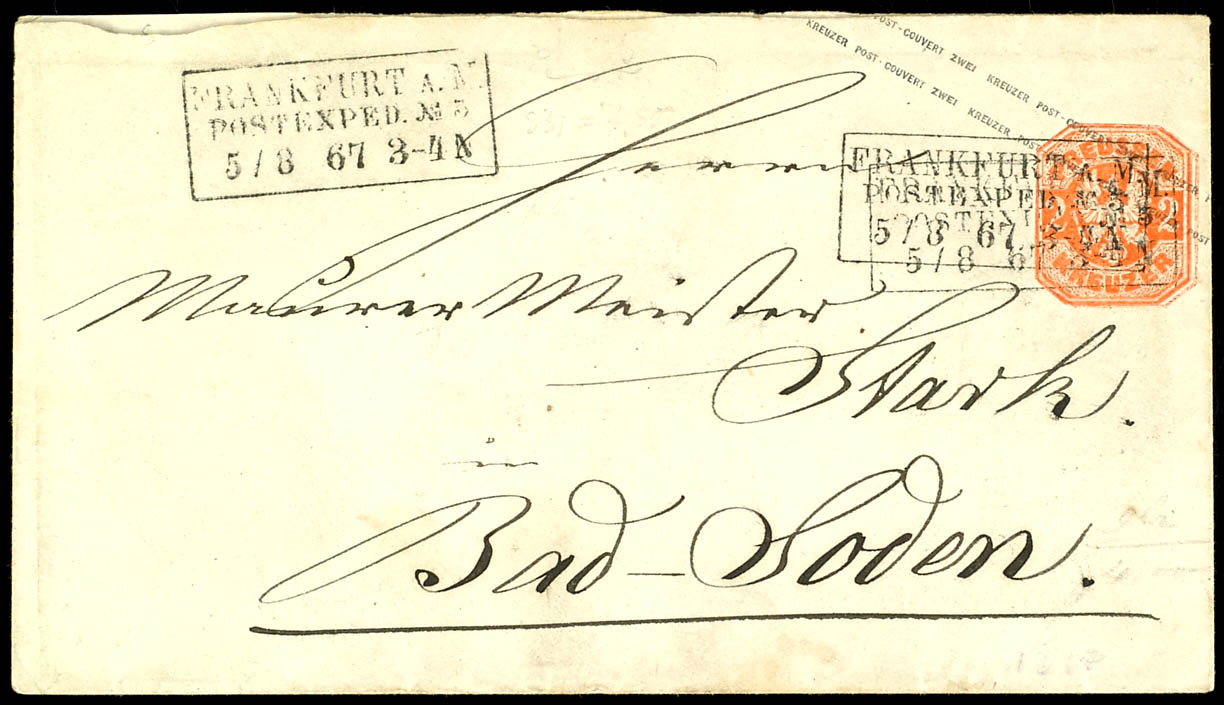 FRANKFURT A. M.
POSTEXPED. № 3
5 / 8 67 3-4 N
POST-COUVERT ZWEI KREUZER POST-COUVERT
KREUZER POST-COUVERT ZWEI KREUZER POST
FRANKFURT A. M.
POSTEXPED. № 3
5 / 8 67
5 / 8 67
2 2
KREUZER
Herrn
Maurer Meister
Stark.
in
Bad-Soden.